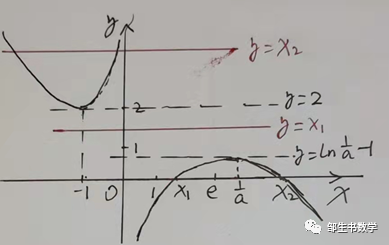 y
y=x₂
2
y=2
y=x₁
1
y=ln 1/a -1
-1 0 1 x₁ e 1/a x₂ x
邹生书数学